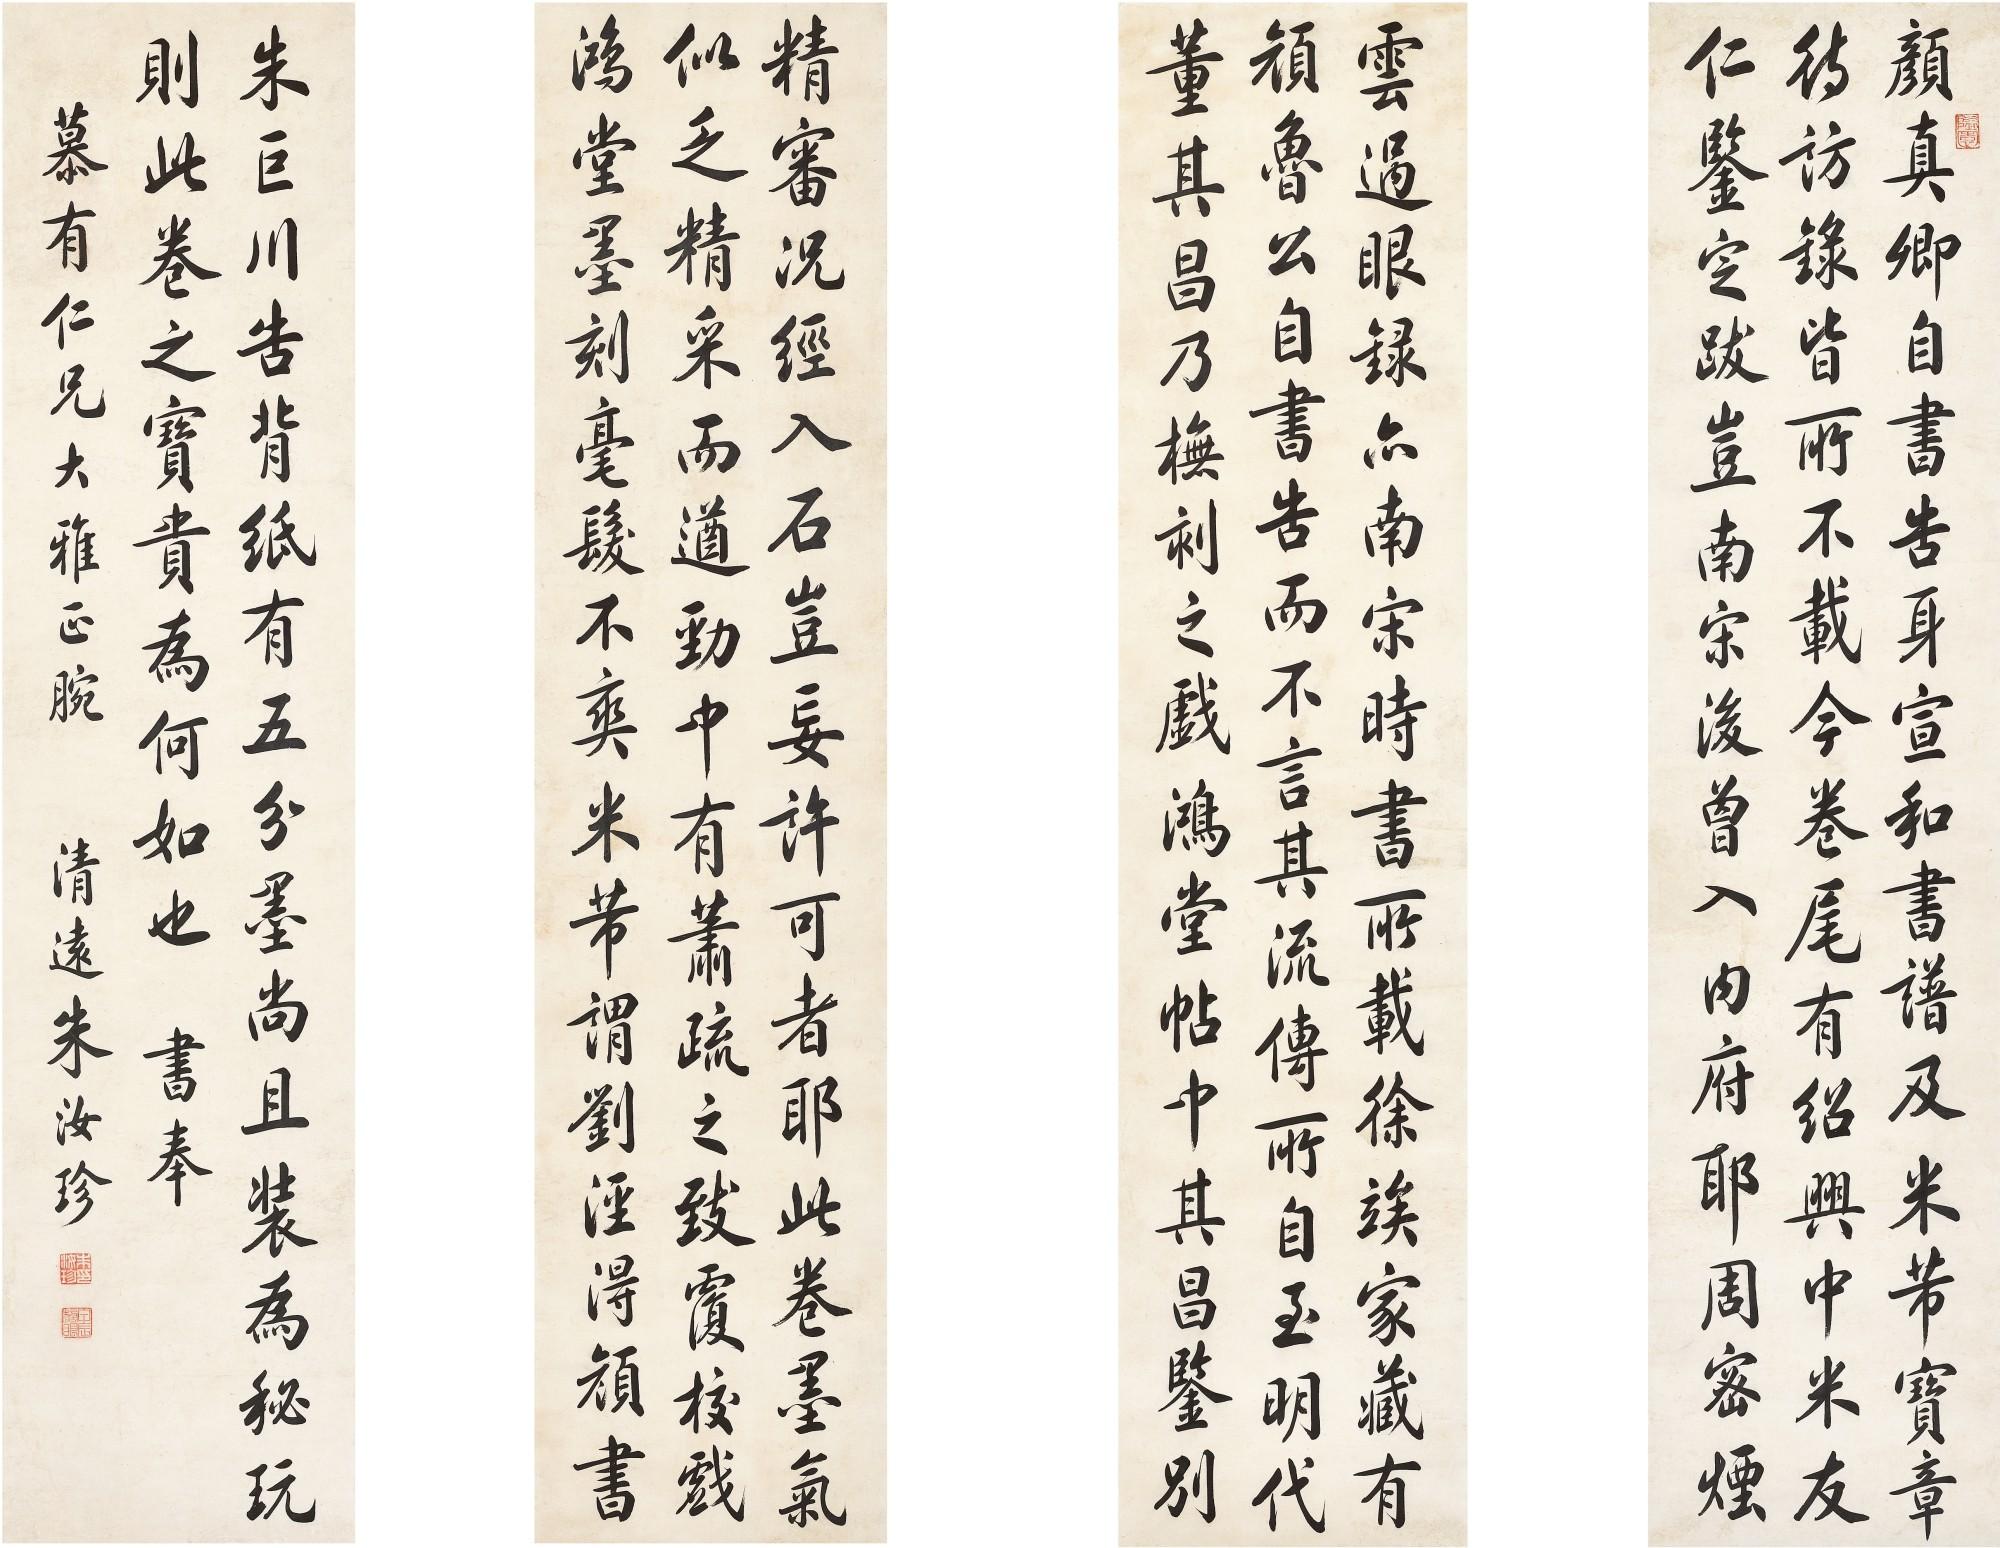 顏真卿自書告身宣和書譜及米芾寶章
待訪錄皆所不載今卷尾有紹興中米友
仁鑒定跋豈南宋後曾入內府耶周密煙
雲過眼録亦南宋時書所載徐竢家藏有
顏魯公自書告而不言其流傳所自至明代
董其昌乃橅刻之戲鴻堂帖中其昌鑒別
精審況經入石豈妄許可者耶此卷墨氣
似乏精采而遒勁中有蕭疏之致覆校戲
鴻堂墨刻毫髮不爽米芾謂劉涇得顏書
朱巨川告背紙有五分墨尚且裝為秘玩
則此卷之寶貴為何如也 書奉
慕有仁兄大雅正腕 清遠朱汝珍